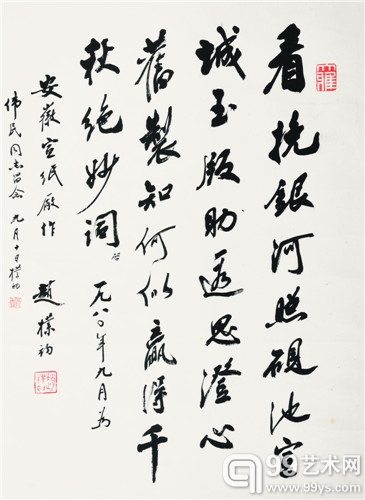 看挽銀河照硯池宣
城玉版助遐思澄心
舊製知何似贏得千
秋絶妙詞
一九八〇年九月為
安徽宣纸廠作
趙樸初
伟民同志留念 九月十日樸初
99艺术网
www.99ys.com